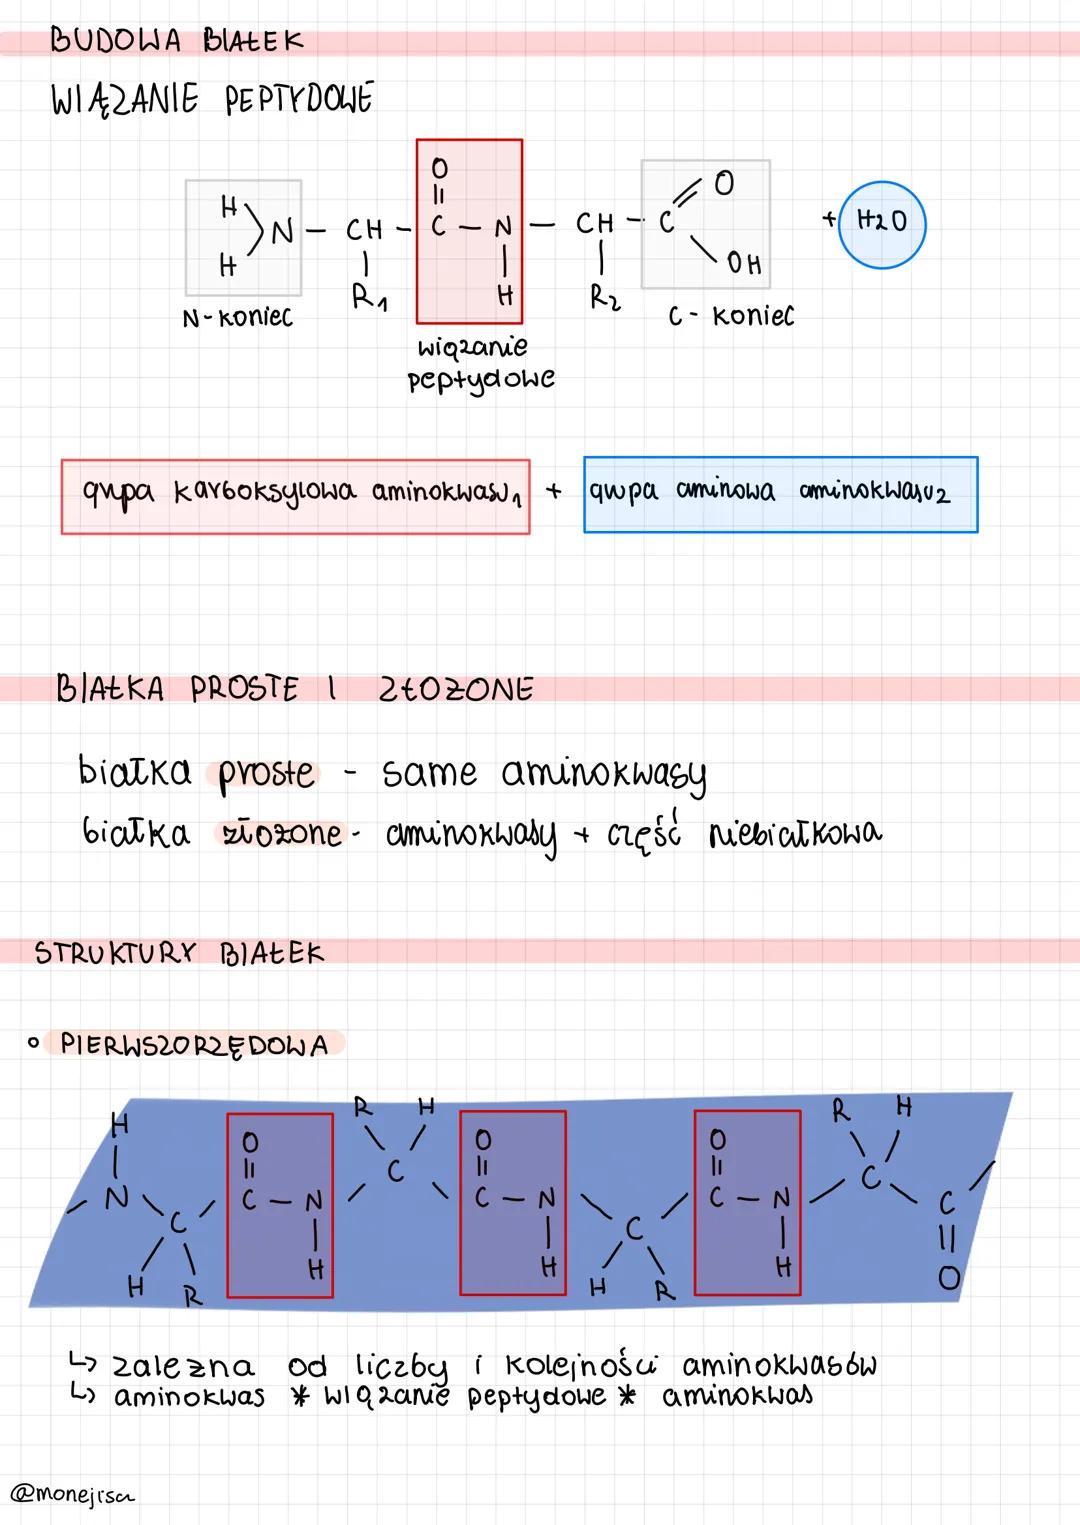 BUDOWA BIAŁEK
WIĄZANIE PEPTYDOWE
O
||
H
H
N – CH – C – N – CH – C
O
OH
+ H2O
R1
H
R2
N-koniec
C - koniec
wiązanie
peptydowe
grupa karboksylowa aminokwasu1 + grupa aminowa aminokwasu2
BIAŁKA PROSTE I ZŁOŻONE
białka proste - same aminokwasy
białka złożone - aminokwasy + część niebiałkowa
STRUKTURY BIAŁEK
PIERWSZORZĘDOWA
R H R H
H O O O
N C – N C C – N C – N C C
C H H C H O
H R H R
↳ zależna od liczby i kolejności aminokwasów
↳ aminokwas * wiązanie peptydowe * aminokwas
@monejrsa